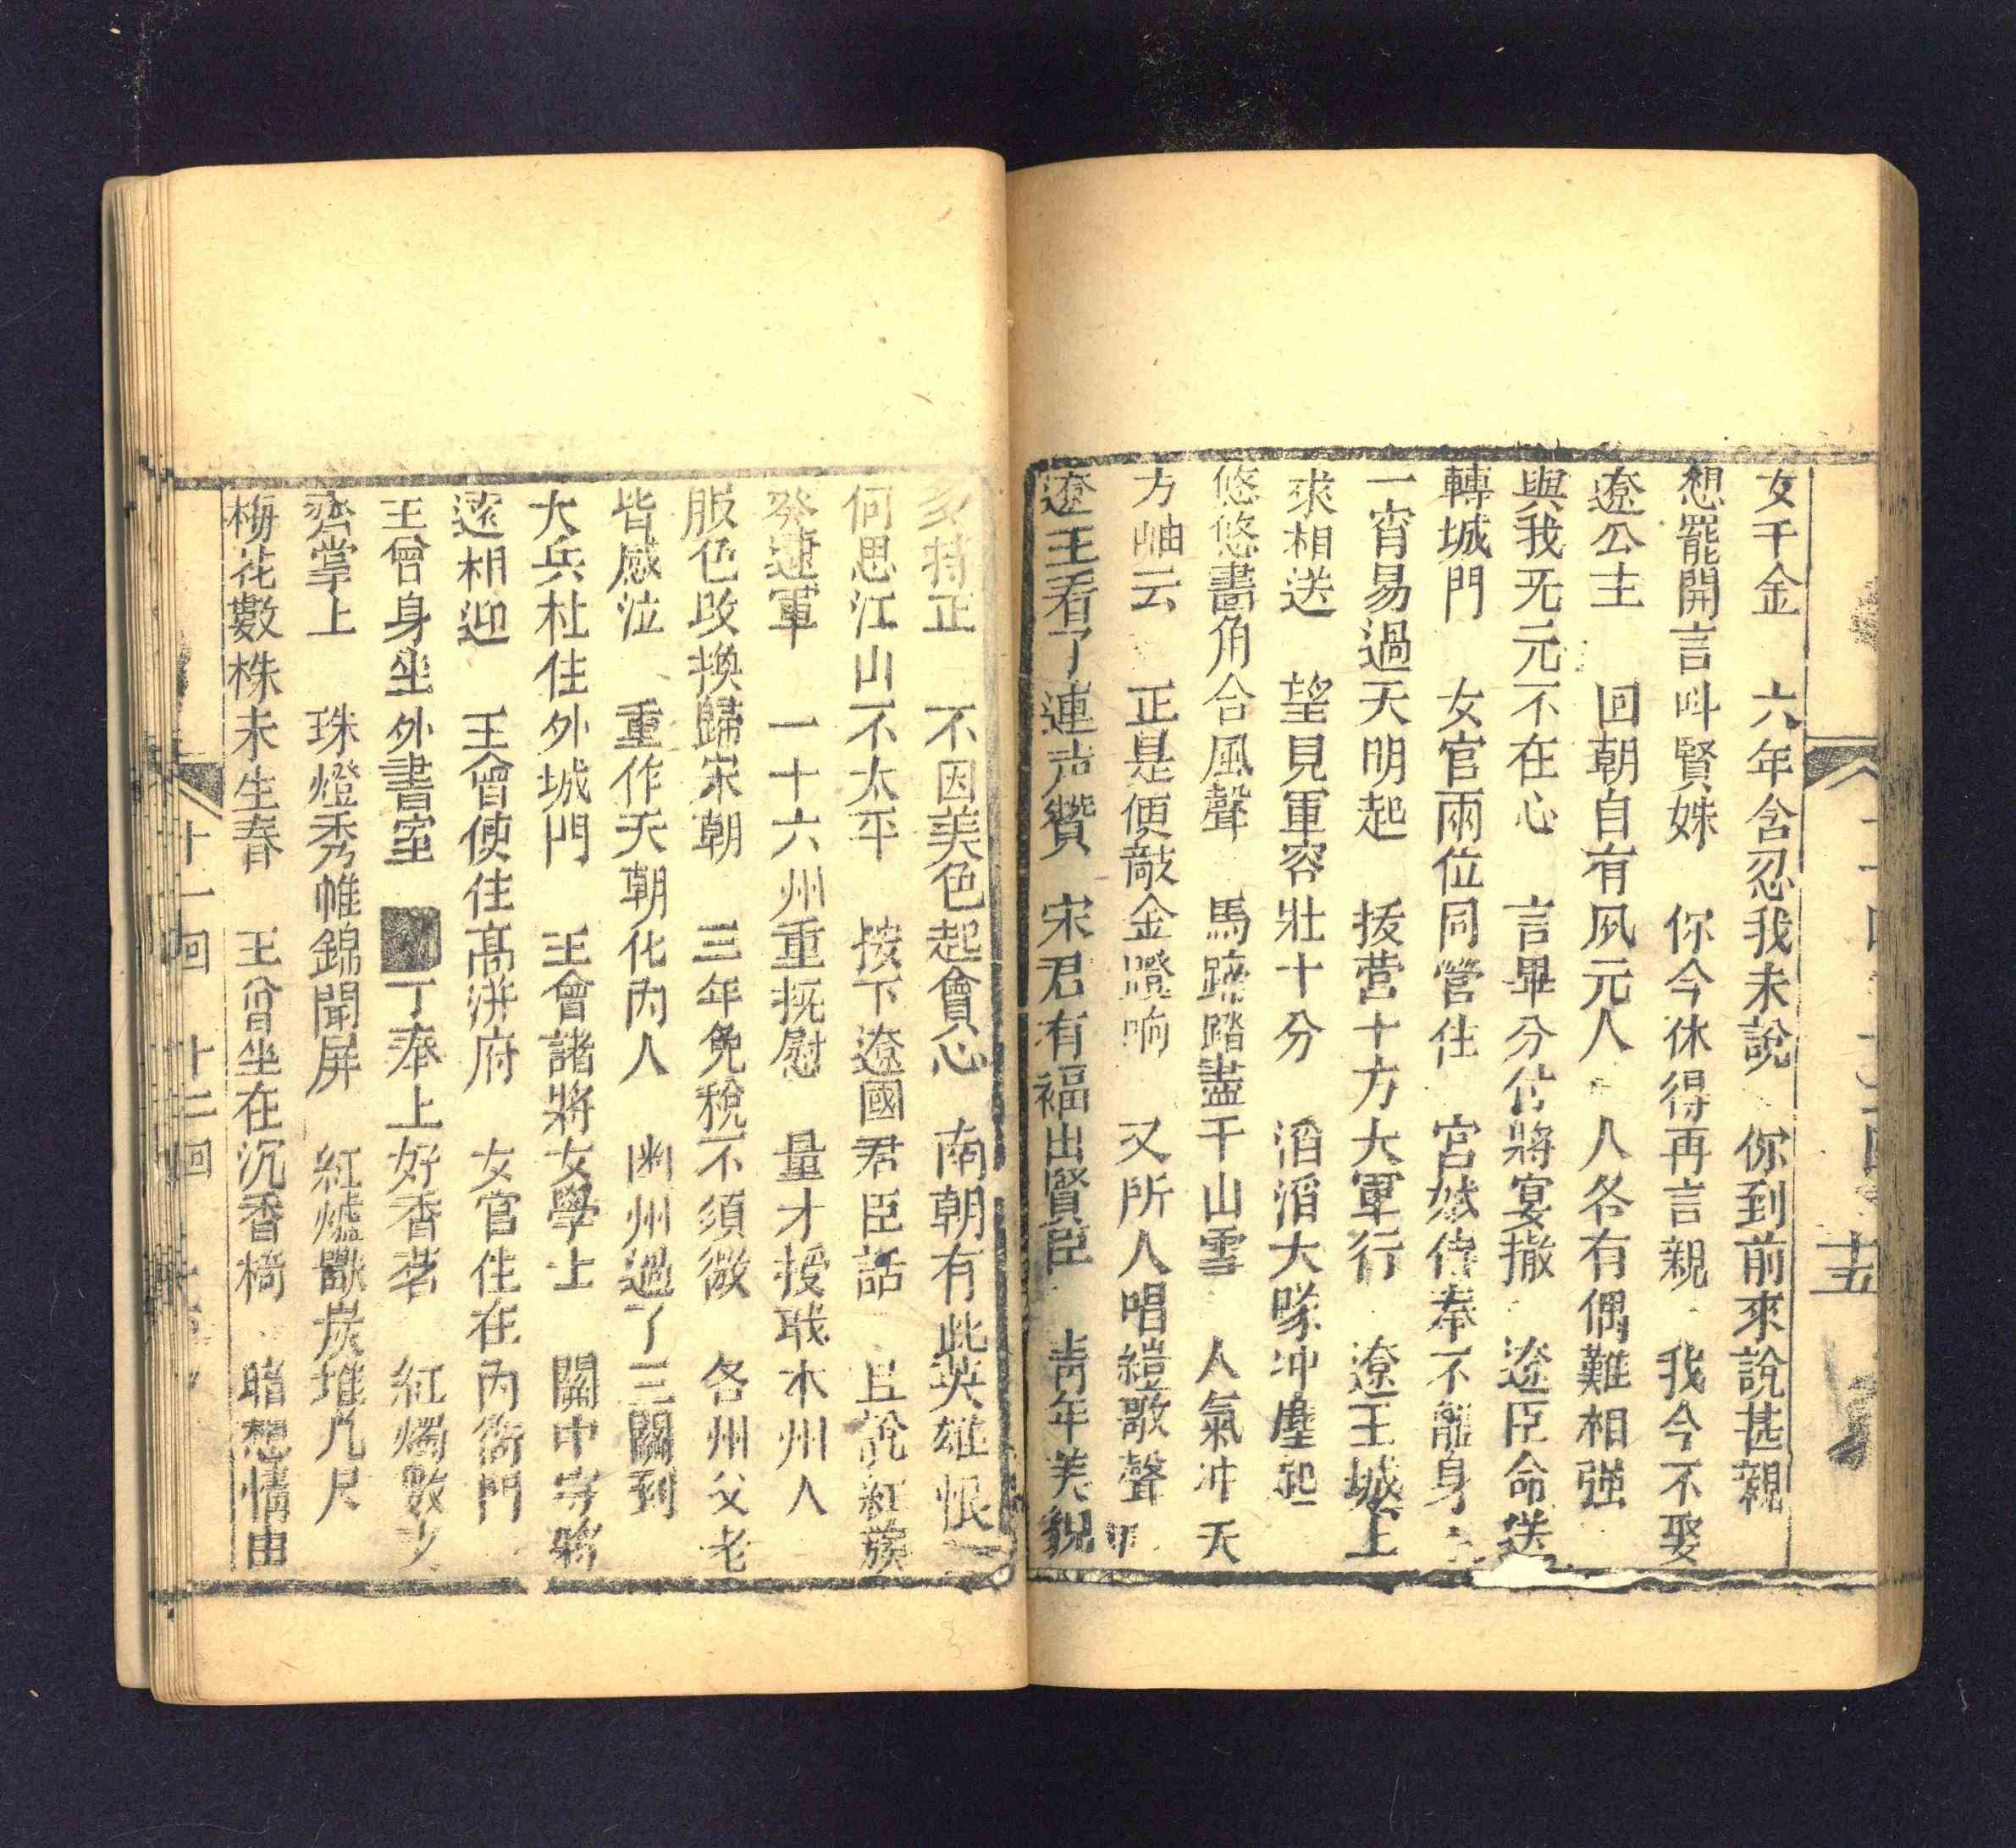 女千金　六年含忍我未說　你到前來說甚親
想罷開言呌賢妹　你今休得再言親　我今不娶
遼公主　回朝自有夙元人　人各有偶難相强
與我无元不在心　言畢分付將宴撤　遼臣命送
轉城門　女官兩位同營住　宮娥侍奉不離身
一宵易過天明起　拔营十方大軍行　遼王城上
求相送　望見軍容壯十分　滔滔大隊冲塵起
悠悠畵角合風聲　馬蹄踏盡千山雪　人氣冲天
方岫云　正是便敲金蹬响　又所人唱鎧歌聲
遼王看了連声賛　宋君有福出賢臣　靑年美貌
多持正　不因美色起會心　南朝有此英雄
何思江山不太平　按下遼國君臣話　且說紅蕿
發建軍　一十六州重抚慰　量才授戝木州人
服色改換歸宋朝　三年免稅不須徵　各州父老
皆感泣　重作天朝化內人　幽州過了三關到
大兵杜住外城門　王會諸將女學上　關中守將
遠相迎　王曾使住高洴府　女官住在內衙門
王曾身坐外書室　丁奉上好香茗　紅燭數
齊掌上　珠燈秀帷錦聞屏　紅爐獸炭堆凢尺
梅花數株未生春　王曾坐在沉香椅　暗想情由
十一回　十二回
十五